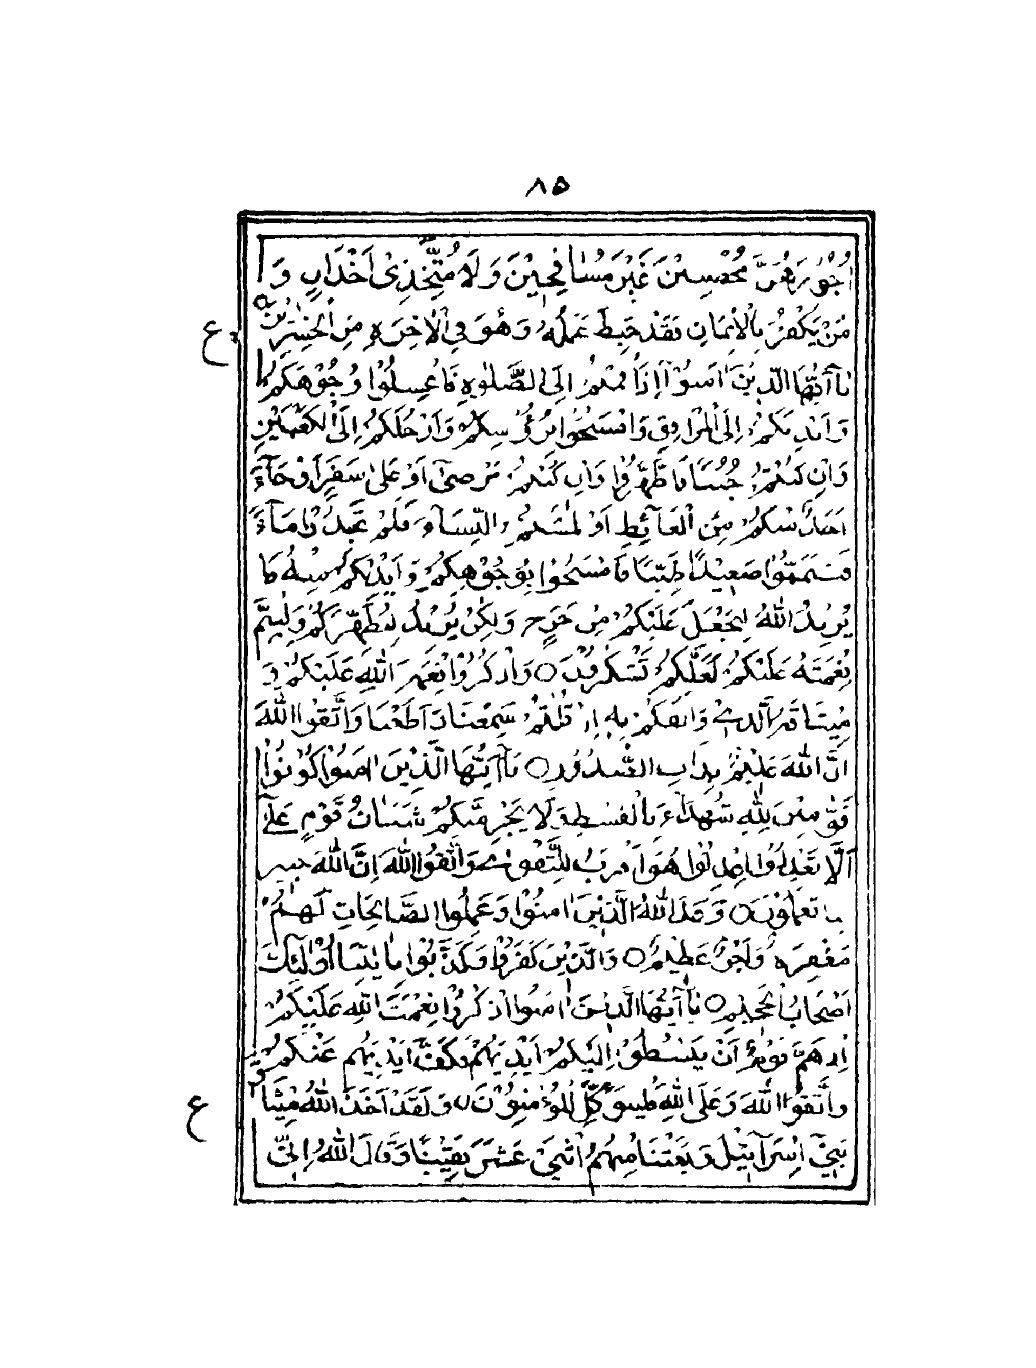 ۸۵
اُجُوْرَهُنَّ مُحْصِنِيْنَ غَيْرَ مُسَافِحِيْنَ وَلَا مُتَّخِذِىْٓ اَخْدَانٍ وَ
مَنْ يَكْفُرْ بِالْاِيْمَانِ فَقَدْ حَبِطَ عَمَلُهٗ وَهُوَ فِى الْاٰخِرَةِ مِنَ الْخٰسِرِيْنَ
ع
يٰٓاَيُّهَا الَّذِيْنَ اٰمَنُوْٓا اِذَا قُمْتُمْ اِلَى الصَّلٰوةِ فَاغْسِلُوْا وُجُوْهَكُمْ
وَاَيْدِيَكُمْ اِلَى الْمَرَافِقِ وَامْسَحُوْا بِرُءُوْسِكُمْ وَاَرْجُلَكُمْ اِلَى الْكَعْبَيْنِ
وَاِنْ كُنْتُمْ جُنُبًا فَاطَّهَّرُوْا وَاِنْ كُنْتُمْ مَّرْضٰٓى اَوْ عَلٰى سَفَرٍ اَوْ جَآءَ
اَحَدٌ مِّنْكُمْ مِّنَ الْغَآئِطِ اَوْ لٰمَسْتُمُ النِّسَآءَ فَلَمْ تَجِدُوْا مَآءً
فَتَيَمَّمُوْا صَعِيْدًا طَيِّبًا فَامْسَحُوْا بِوُجُوْهِكُمْ وَاَيْدِيْكُمْ مِّنْهُ مَا
يُرِيْدُ اللّٰهُ لِيَجْعَلَ عَلَيْكُمْ مِّنْ حَرَجٍ وَّلٰكِنْ يُّرِيْدُ لِيُطَهِّرَكُمْ وَلِيُتِمَّ
نِعْمَتَهٗ عَلَيْكُمْ لَعَلَّكُمْ تَشْكُرُوْنَ ○ وَاذْكُرُوْا نِعْمَةَ اللّٰهِ عَلَيْكُمْ وَ
مِيْثَاقَهُ الَّذِىْ وَاثَقَكُمْ بِهٖٓ اِذْ قُلْتُمْ سَمِعْنَا وَاَطَعْنَا وَاتَّقُوا اللّٰهَ
اِنَّ اللّٰهَ عَلِيْمٌ بِذَاتِ الصُّدُوْرِ ○ يٰٓاَيُّهَا الَّذِيْنَ اٰمَنُوْا كُوْنُوْا
قَوّٰمِيْنَ لِلّٰهِ شُهَدَآءَ بِالْقِسْطِ وَلَا يَجْرِمَنَّكُمْ شَنَاٰنُ قَوْمٍ عَلٰٓى
اَلَّا تَعْدِلُوْا اِعْدِلُوْا هُوَ اَقْرَبُ لِلتَّقْوٰى وَاتَّقُوا اللّٰهَ اِنَّ اللّٰهَ خَبِيْرٌ
بِمَا تَعْمَلُوْنَ ○ وَعَدَ اللّٰهُ الَّذِيْنَ اٰمَنُوْا وَعَمِلُوا الصَّالِحَاتِ لَهُمْ
مَغْفِرَةٌ وَّاَجْرٌ عَظِيْمٌ ○ وَالَّذِيْنَ كَفَرُوْا وَكَذَّبُوْا بِاٰيٰتِنَا اُولٰٓئِكَ
اَصْحَابُ الْجَحِيْمِ ○ يٰٓاَيُّهَا الَّذِيْنَ اٰمَنُوا اذْكُرُوْا نِعْمَتَ اللّٰهِ عَلَيْكُمْ
اِذْ هَمَّ قَوْمٌ اَنْ يَّبْسُطُوْٓا اِلَيْكُمْ اَيْدِيَهُمْ فَكَفَّ اَيْدِيَهُمْ عَنْكُمْ
وَاتَّقُوا اللّٰهَ وَعَلَى اللّٰهِ فَلْيَتَوَكَّلِ الْمُؤْمِنُوْنَ ○ وَلَقَدْ اَخَذَ اللّٰهُ مِيْثَاقَ
ع
بَنِىْٓ اِسْرَآئِيْلَ وَبَعَثْنَا مِنْهُمُ اثْنَىْ عَشَرَ نَقِيْبًا وَقَالَ اللّٰهُ اِنِّىْ